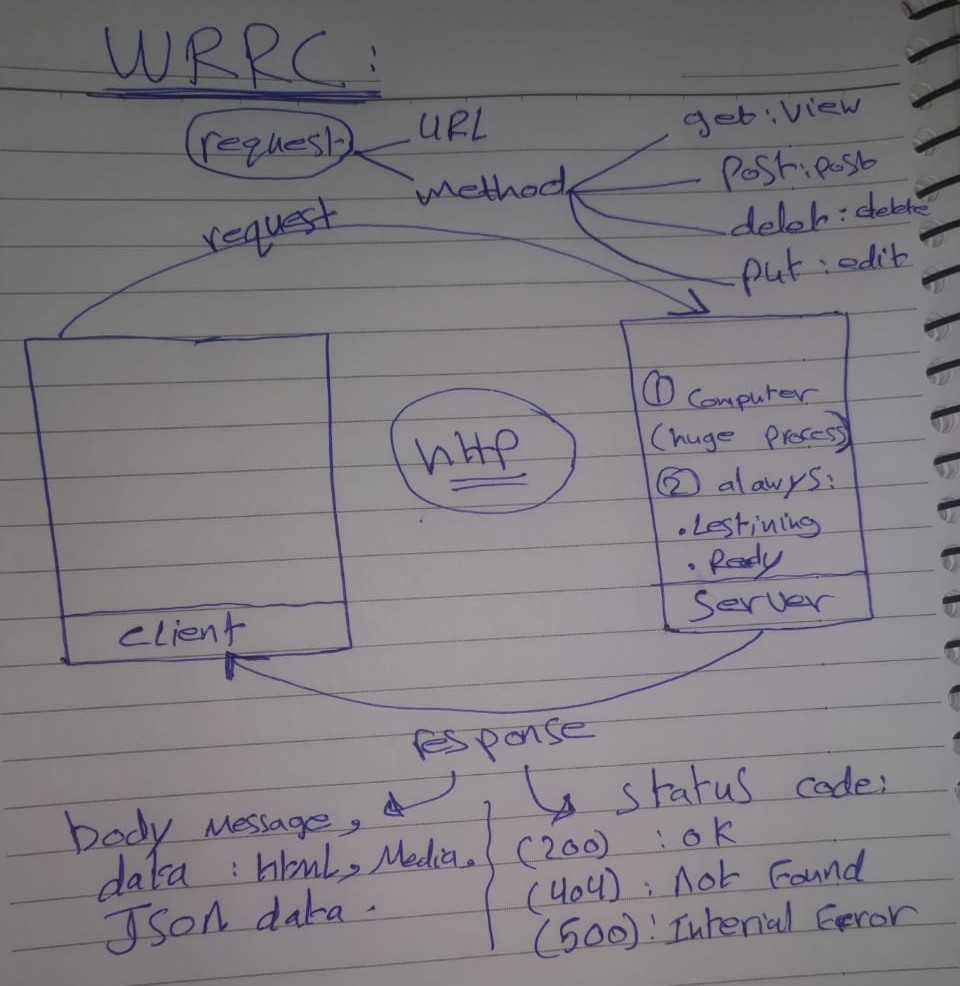 WRRC:
request
URL
method
get: view
post: post
delet: delete
put: edit
request
http
① Computer
(huge process)
② alawys:
. Lestining
. Ready
Server
Client
response
body message,
data : html, Media.
JSON data.
status code:
(200) : ok
(404) : Not Found
(500) : Interial Error